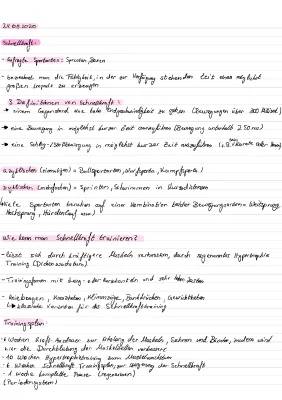 24.08.2020
Schnellkraft:
- Gefragte Sportarten: Sprinten, Boxen
- bezeichnet man die Fähigkeit, in der zur Verfügung stehenden Zeit einen möglichst
großen Impuls zu erzeugen
3 Definitionen von Schnellkraft:
→ einem Gegenstand eine hohe Endgeschwindigkeit zu geben (Bewegungen über
→ eine Bewegung in möglichst kurzer Zeit auszuführen (Bewegung unterhalb 250 ms)
→ eine Schlag- in möglichst kurzer Zeit auszuführen (z.B. Karate oder
azyklischen (einmaligen) = Ballsportarten, Wurfsports, Kampfsports)
zyklischen (mehrfachen) = Sprinten, Schwimmen in Kurzdistanzen
Viele Sportarten beruhen auf einer Kombination beider Bewegungsarten = Weitsprung,
Hochsprung, Hürdenlauf usw.)
Wie kann man Schnellkraft trainieren?
- lässt sich durch kräftigere Muskeln verbessern, durch sogenannte Hypertrophie
Training (Dickenwachstum)
- Trainingsformen mit und sehr hohen Lasten
- Kniebeugen, Kreuzheben, Klimmzüge, Bankdrücken, Gewichtheben
→ klassische Varianten für das Schnellkrafttraining
Trainingsplan:
- 6 Wochen Kraft-Ausdauer zur Stärkung der Muskeln, Sehnen und Bänder, zudem wird
hier die Durchblutung der Muskelzellen verbessert
- 10 Wochen Hypertrophietraining zum Muskelwachstum
- 6 Wochen Schnellkraft Trainingsplan, zur Steigerung der Schnellkraft
- 1 Woche komplette Pause (regenerieren)
(Periodensystem)